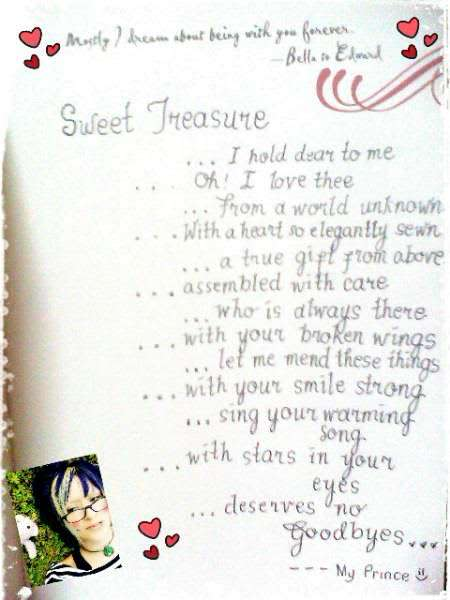 Mostly I dream about being with you forever.
— Bella to Edward
Sweet Treasure
... I hold dear to me
... Oh! I love thee
... from a world unknown
... With a heart so elegantly sewn
... a true gift from above
... assembled with care
... who is always there
... with your broken wings
... let me mend these things
... with your smile strong
... sing your warming
song
... with stars in your
eyes
... deserves no
Goodbyes...
--- My Prince